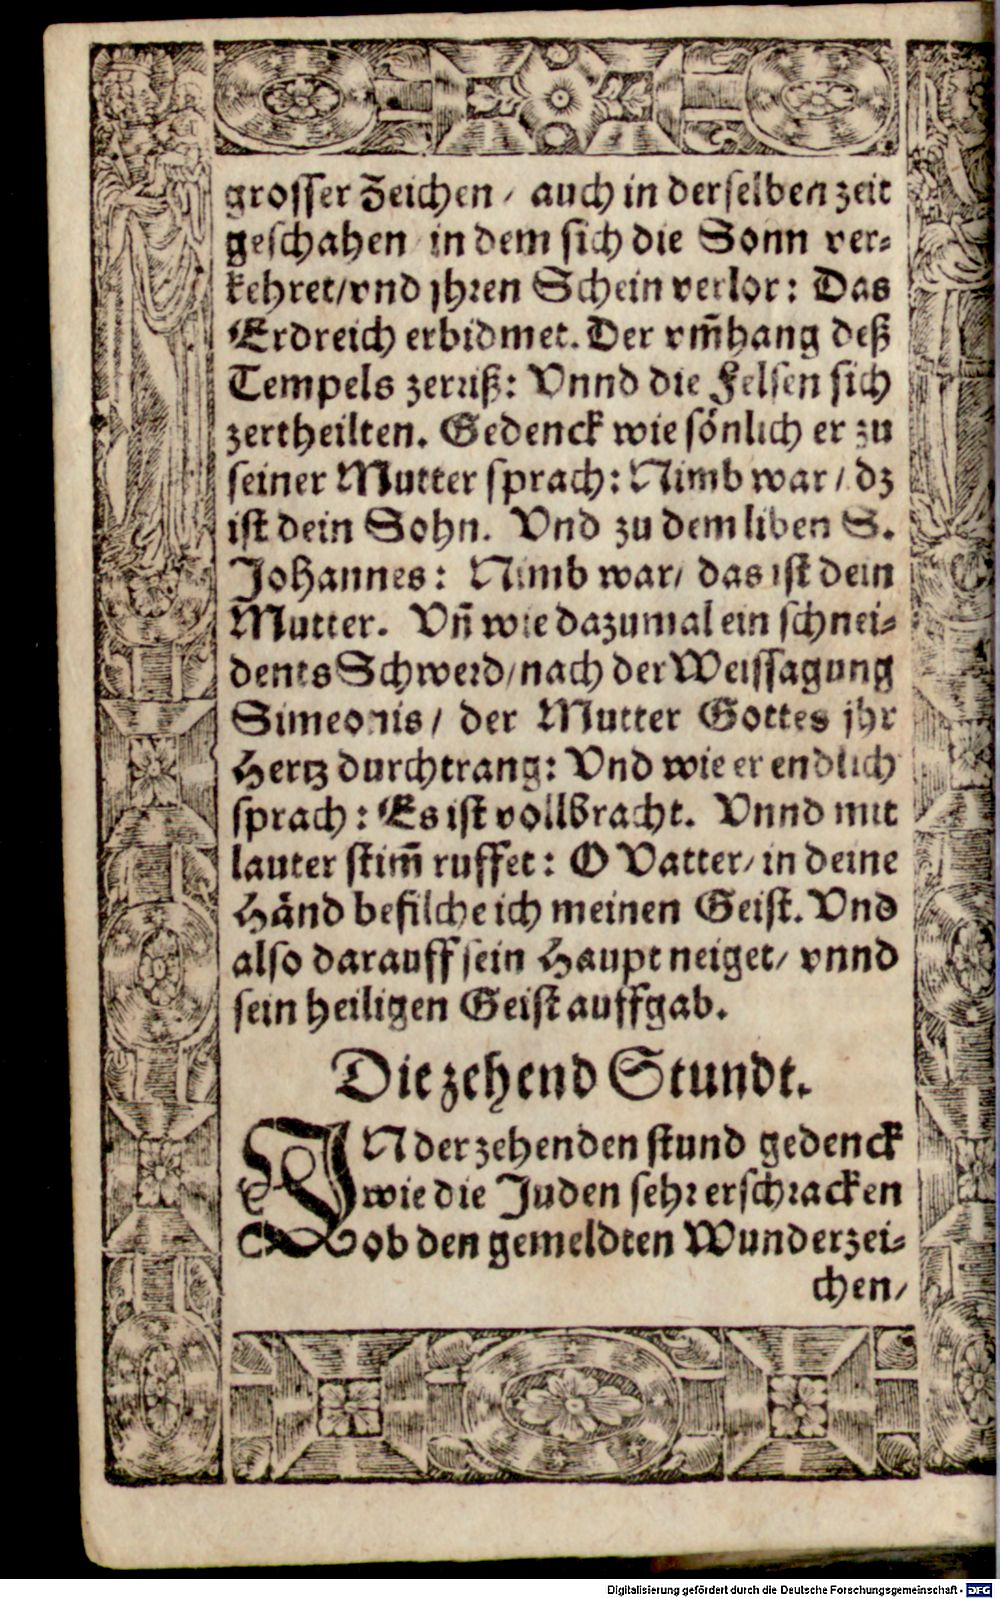 grosser Zeichen / auch in derselben zeit
geschahen in dem sich die Sonn ver⸗
kehret/vnd jhren Schein verlor: Das
Erdreich erbidmet. Der vm̃hang deß
Tempels zerriß: Vnnd die Felsen sich
zertheilten. Gedenck wie sönlich er zu
seiner Mutter sprach: Nimb war / dz
ist dein Sohn. Vnd zu dem liben S.
Johannes: Nimb war / das ist dein
Mutter. Vñ wie dazumal ein schnei⸗
dents Schwerd/nach der Weissagung
Simeonis/ der Mutter Gottes jhr
Hertz durchtrang: Vnd wie er endlich
sprach: Es ist vollbracht. Vnnd mit
lauter stim̃ ruffet: O Vatter/ in deine
Händ befilche ich meinen Geist. Vnd
also darauff sein Haupt neiget/ vnnd
sein heiligen Geist auffgab.
Die zehend Stundt.
IN der zehenden stund gedenck
wie die Juden sehr erschracken
ob den gemeldten Wunderzei⸗
chen/
Digitalisierung gefördert durch die Deutsche Forschungsgemeinschaft - DFG